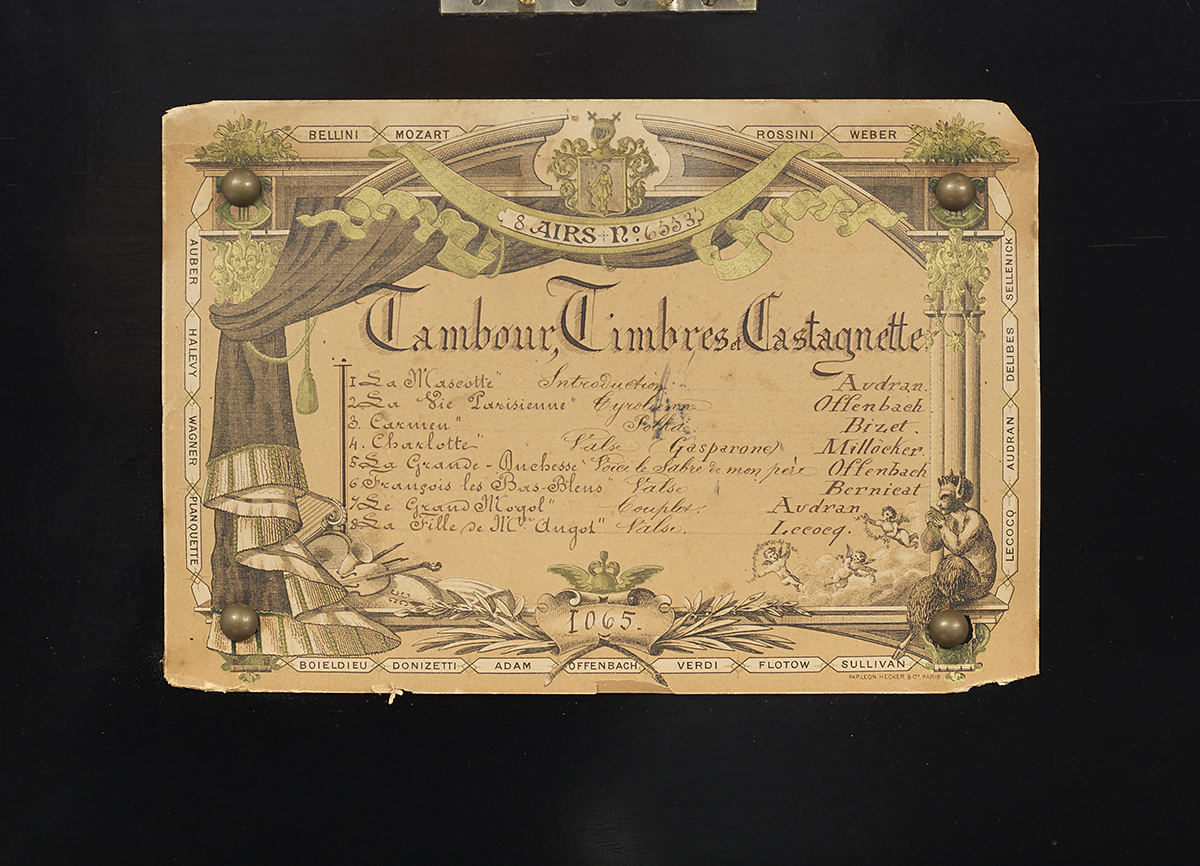 BELLINI MOZART ROSSINI WEBER
8 AIRS Nº 6553
AUBER HALEVY WAGNER PLANQUETTE
Tambour, Timbres et Castagnette
1 La Mascotte" Introduction Audran.
2 La Vie Parisienne" Tyrolienne Offenbach
3. Carmen" Polka Bizet.
4. Charlotte" Valse (Gasparone) Millöcker
5 La Grande-Duchesse" Voici le Sabre de mon père Offenbach
6 François les Bas-Bleus" Valse Bernicat
7 Le Grand Mogol" Couplet. Audran
8 La Fille de Mme Angot" Valse. Lecocq.
SELLENICK DELIBES AUDRAN LECOCQ
1065.
BOIELDIEU DONIZETTI ADAM OFFENBACH VERDI FLOTOW SULLIVAN
PAP. LEON HECKER & Cº. PARIS